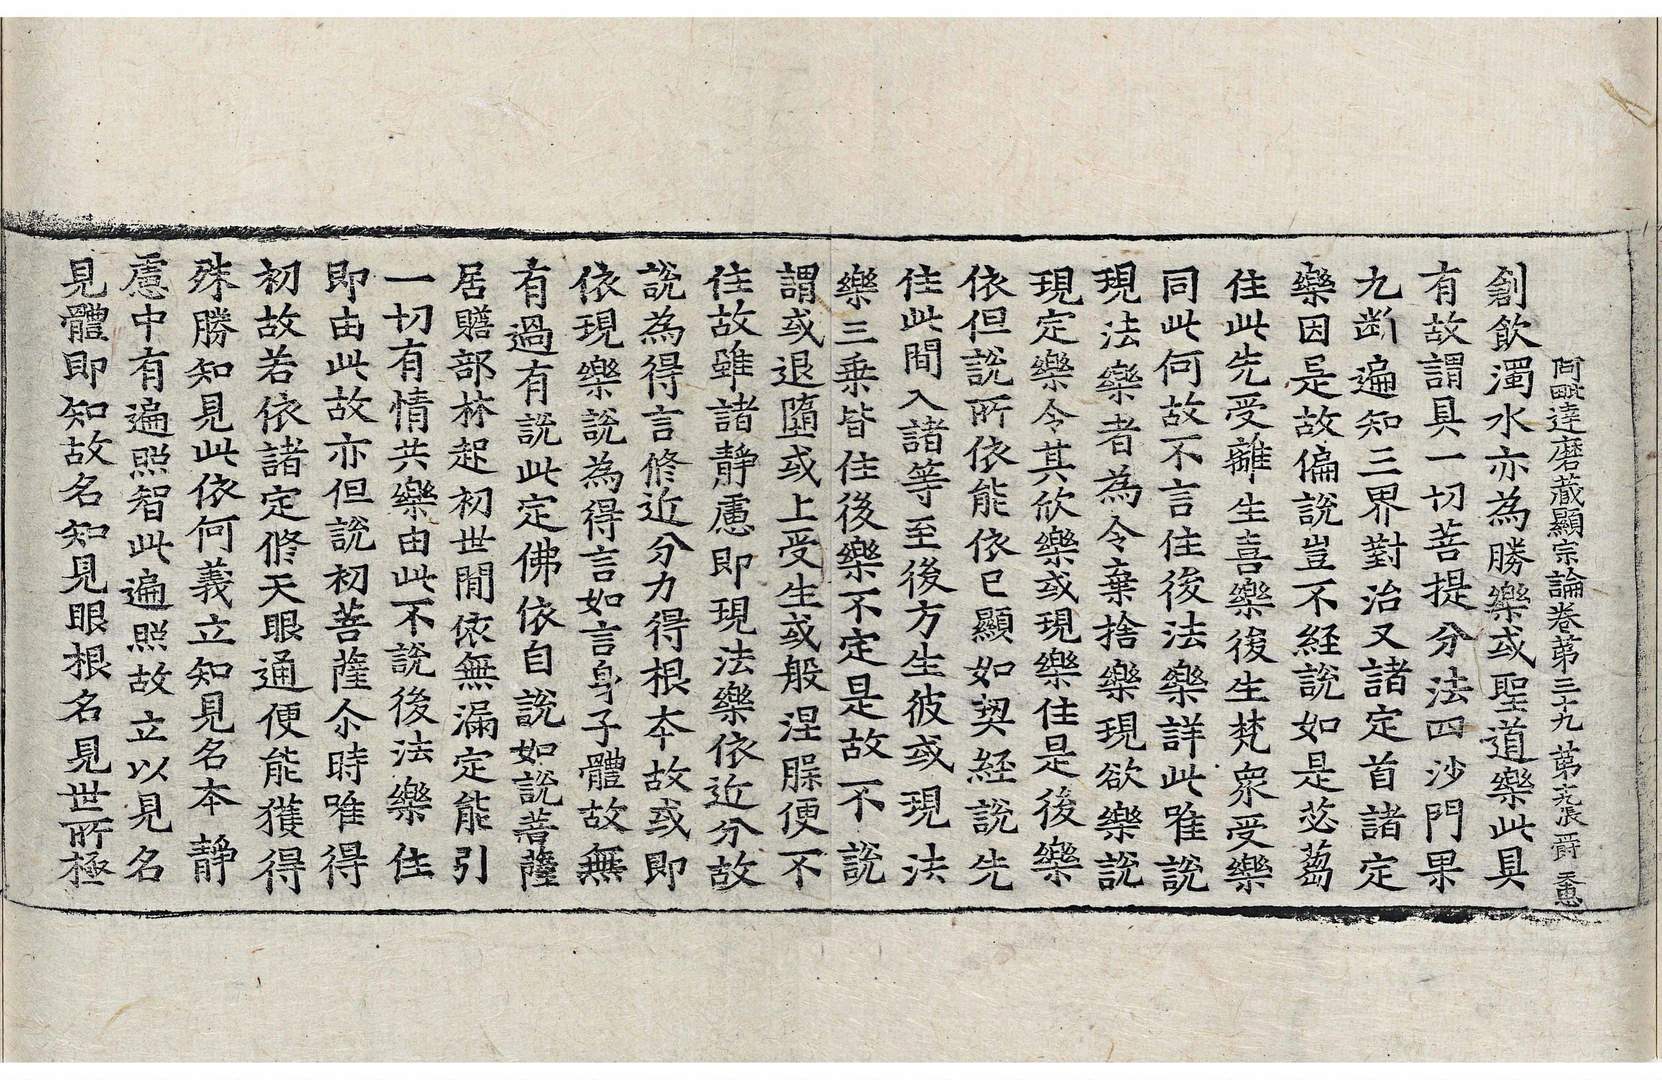 阿毗達磨藏顯宗論卷第三十九 第九張 爵 天惠
創飲濁水亦為勝樂或聖道樂此具
有故謂具一切菩提分法四沙門果
九断遍知三界對治又諸定首諸定
樂因是故偏說豈不經說如是苾蒭
住此先受離生喜樂後生梵衆受樂
同此何故不言住後法樂詳此唯說
現法樂者為令棄捨樂現欲樂說
現定樂令其欣樂或現樂住是後樂
依但說所依能依已顯如契經說先
住此間入諸等至後方生彼或現法
樂三乗皆住後樂不定是故不說
謂或退墮或上受生或般涅脲便不
住故雖諸靜慮即現法樂依近分故
說為得言修近分力得根本故或即
依現樂說為得言如言身子體故無
有過有說此定佛依自說如說菩薩
居贍部林起初世間依無漏定能引
一切有情共樂由此不說後法樂住
即由此故亦但說初菩薩尒時唯得
初故若依諸定修天眼通便能獲得
殊勝知見此依何義立知見名本靜
慮中有遍照智此遍照故立以見名
見體即知故名知見眼根名見世所極